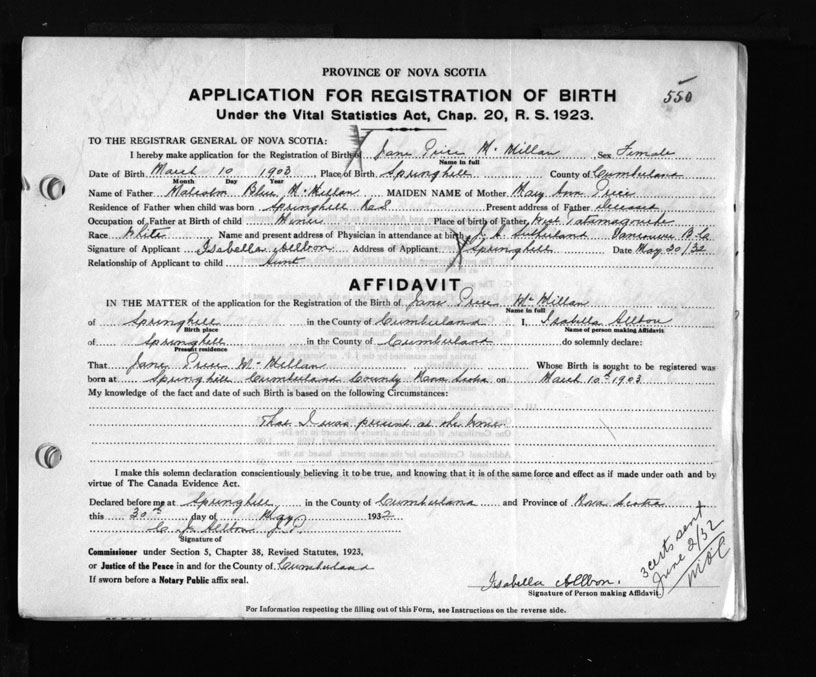 PROVINCE OF NOVA SCOTIA
APPLICATION FOR REGISTRATION OF BIRTH
550
Under the Vital Statistics Act, Chap. 20, R. S. 1923.
TO THE REGISTRAR GENERAL OF NOVA SCOTIA:
I hereby make application for the Registration of Birth of Jane Price McMillan Sex Female
Name in full
Date of Birth March 10 1903 Place of Birth Springhill County of Cumberland
Month Day Year
Name of Father Malcolm Blue McMillan MAIDEN NAME of Mother Mary Ann Price
Residence of Father when child was born Springhill N S Present address of Father Deceased
Occupation of Father at Birth of child Miner Place of birth of Father, West Tatamagouche
Race White Name and present address of Physician in attendance at birth Sutherland Vancouver B.C.
Signature of Applicant Isabella Allbon Address of Applicant Springhill Date May 30/32
Relationship of Applicant to child Aunt
AFFIDAVIT
IN THE MATTER of the application for the Registration of the Birth of Jane Price McMillan
Name in full
of Springhill in the County of Cumberland I, Isabella Allbon
Birth place Name of person making Affidavit
of Springhill in the County of Cumberland do solemnly declare:
Present residence
That Jane Price McMillan Whose Birth is sought to be registered was
born at Springhill Cumberland County Nova Scotia on March 10th 1903
My knowledge of the fact and date of such Birth is based on the following Circumstances:
That I was present at the home
I make this solemn declaration conscientiously believing it to be true, and knowing that it is of the same force and effect as if made under oath and by
virtue of The Canada Evidence Act.
Declared before me at Springhill in the County of Cumberland and Province of Nova Scotia
this 30th day of May 1932
Allbon J.P.
Signature of
Commissioner under Section 5, Chapter 38, Revised Statutes, 1923,
or Justice of the Peace in and for the County of Cumberland
If sworn before a Notary Public affix seal.
Isabella Allbon.
Signature of Person making Affidavit
3 certs sent
June 2/32
For Information respecting the filling out of this Form, see Instructions on the reverse side.